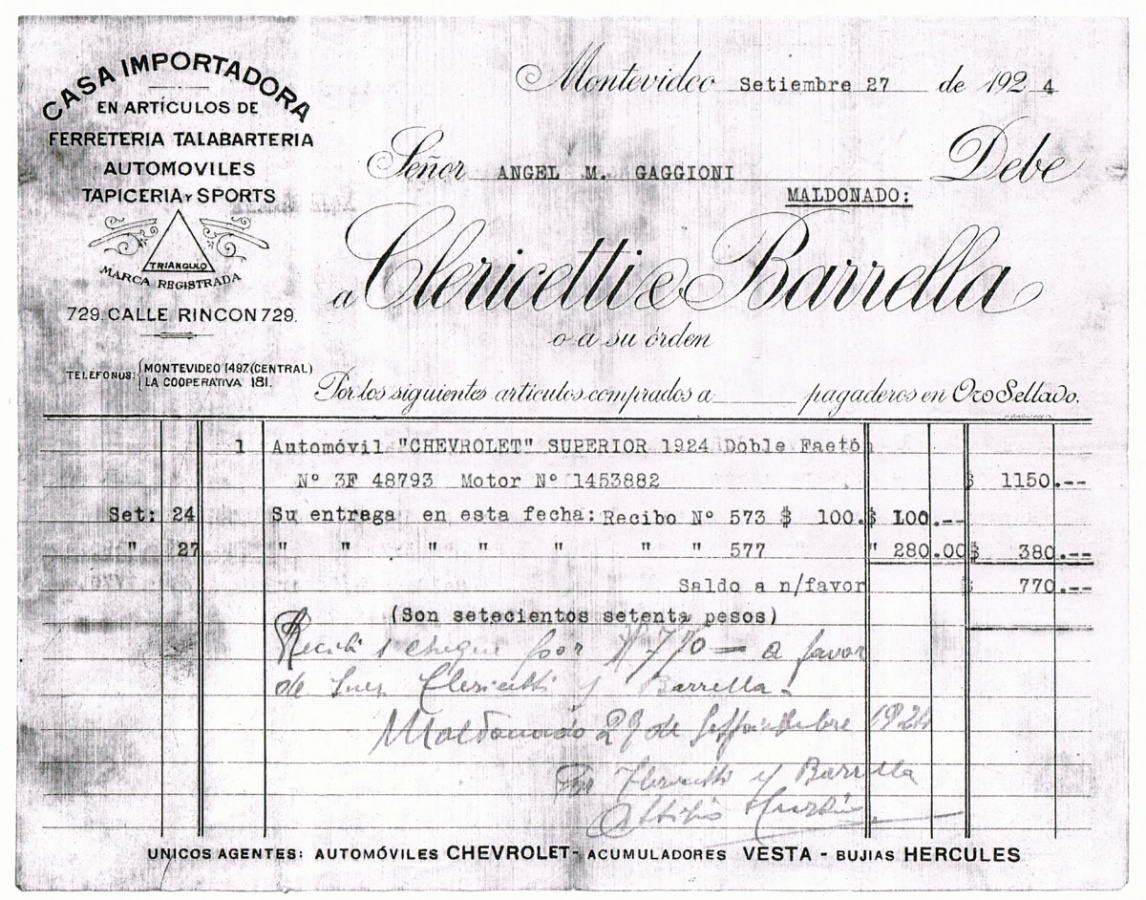 CASA IMPORTADORA
EN ARTÍCULOS DE
FERRETERIA TALABARTERIA
AUTOMOVILES
TAPICERIA Y SPORTS
TRIANGULO
MARCA REGISTRADA
729. CALLE RINCON 729.
TELÉFONOS: MONTEVIDEO 1497 (CENTRAL)
LA COOPERATIVA 181.
Montevideo Setiembre 27 de 192 4
Señor ANGEL M. GAGGIONI Debe
MALDONADO:
a Clericetti e Barrella
o a su órden
Por los siguientes artículos comprados a pagaderos en Oro Sellado.
1 Automóvil "CHEVROLET" SUPERIOR 1924 Dóble Faetó
Nº 3F 48793 Motor Nº 1453882 $ 1150.--
Set: 24 Su entrega en esta fecha: Recibo Nº 573 $ 100. $ 100.--
" 27 " " " " " " " 577 " 280.00 $ 380.--
Saldo a n/favor $ 770.--
(Son setecientos setenta pesos)
Recibí 1 cheque por $ 770 = a favor
de Clericetti y Barrella.
Maldonado 29 de 1924
Por Clericetti y Barrella
Attilio
UNICOS AGENTES: AUTOMÓVILES CHEVROLET - ACUMULADORES VESTA - BUJIAS HERCULES